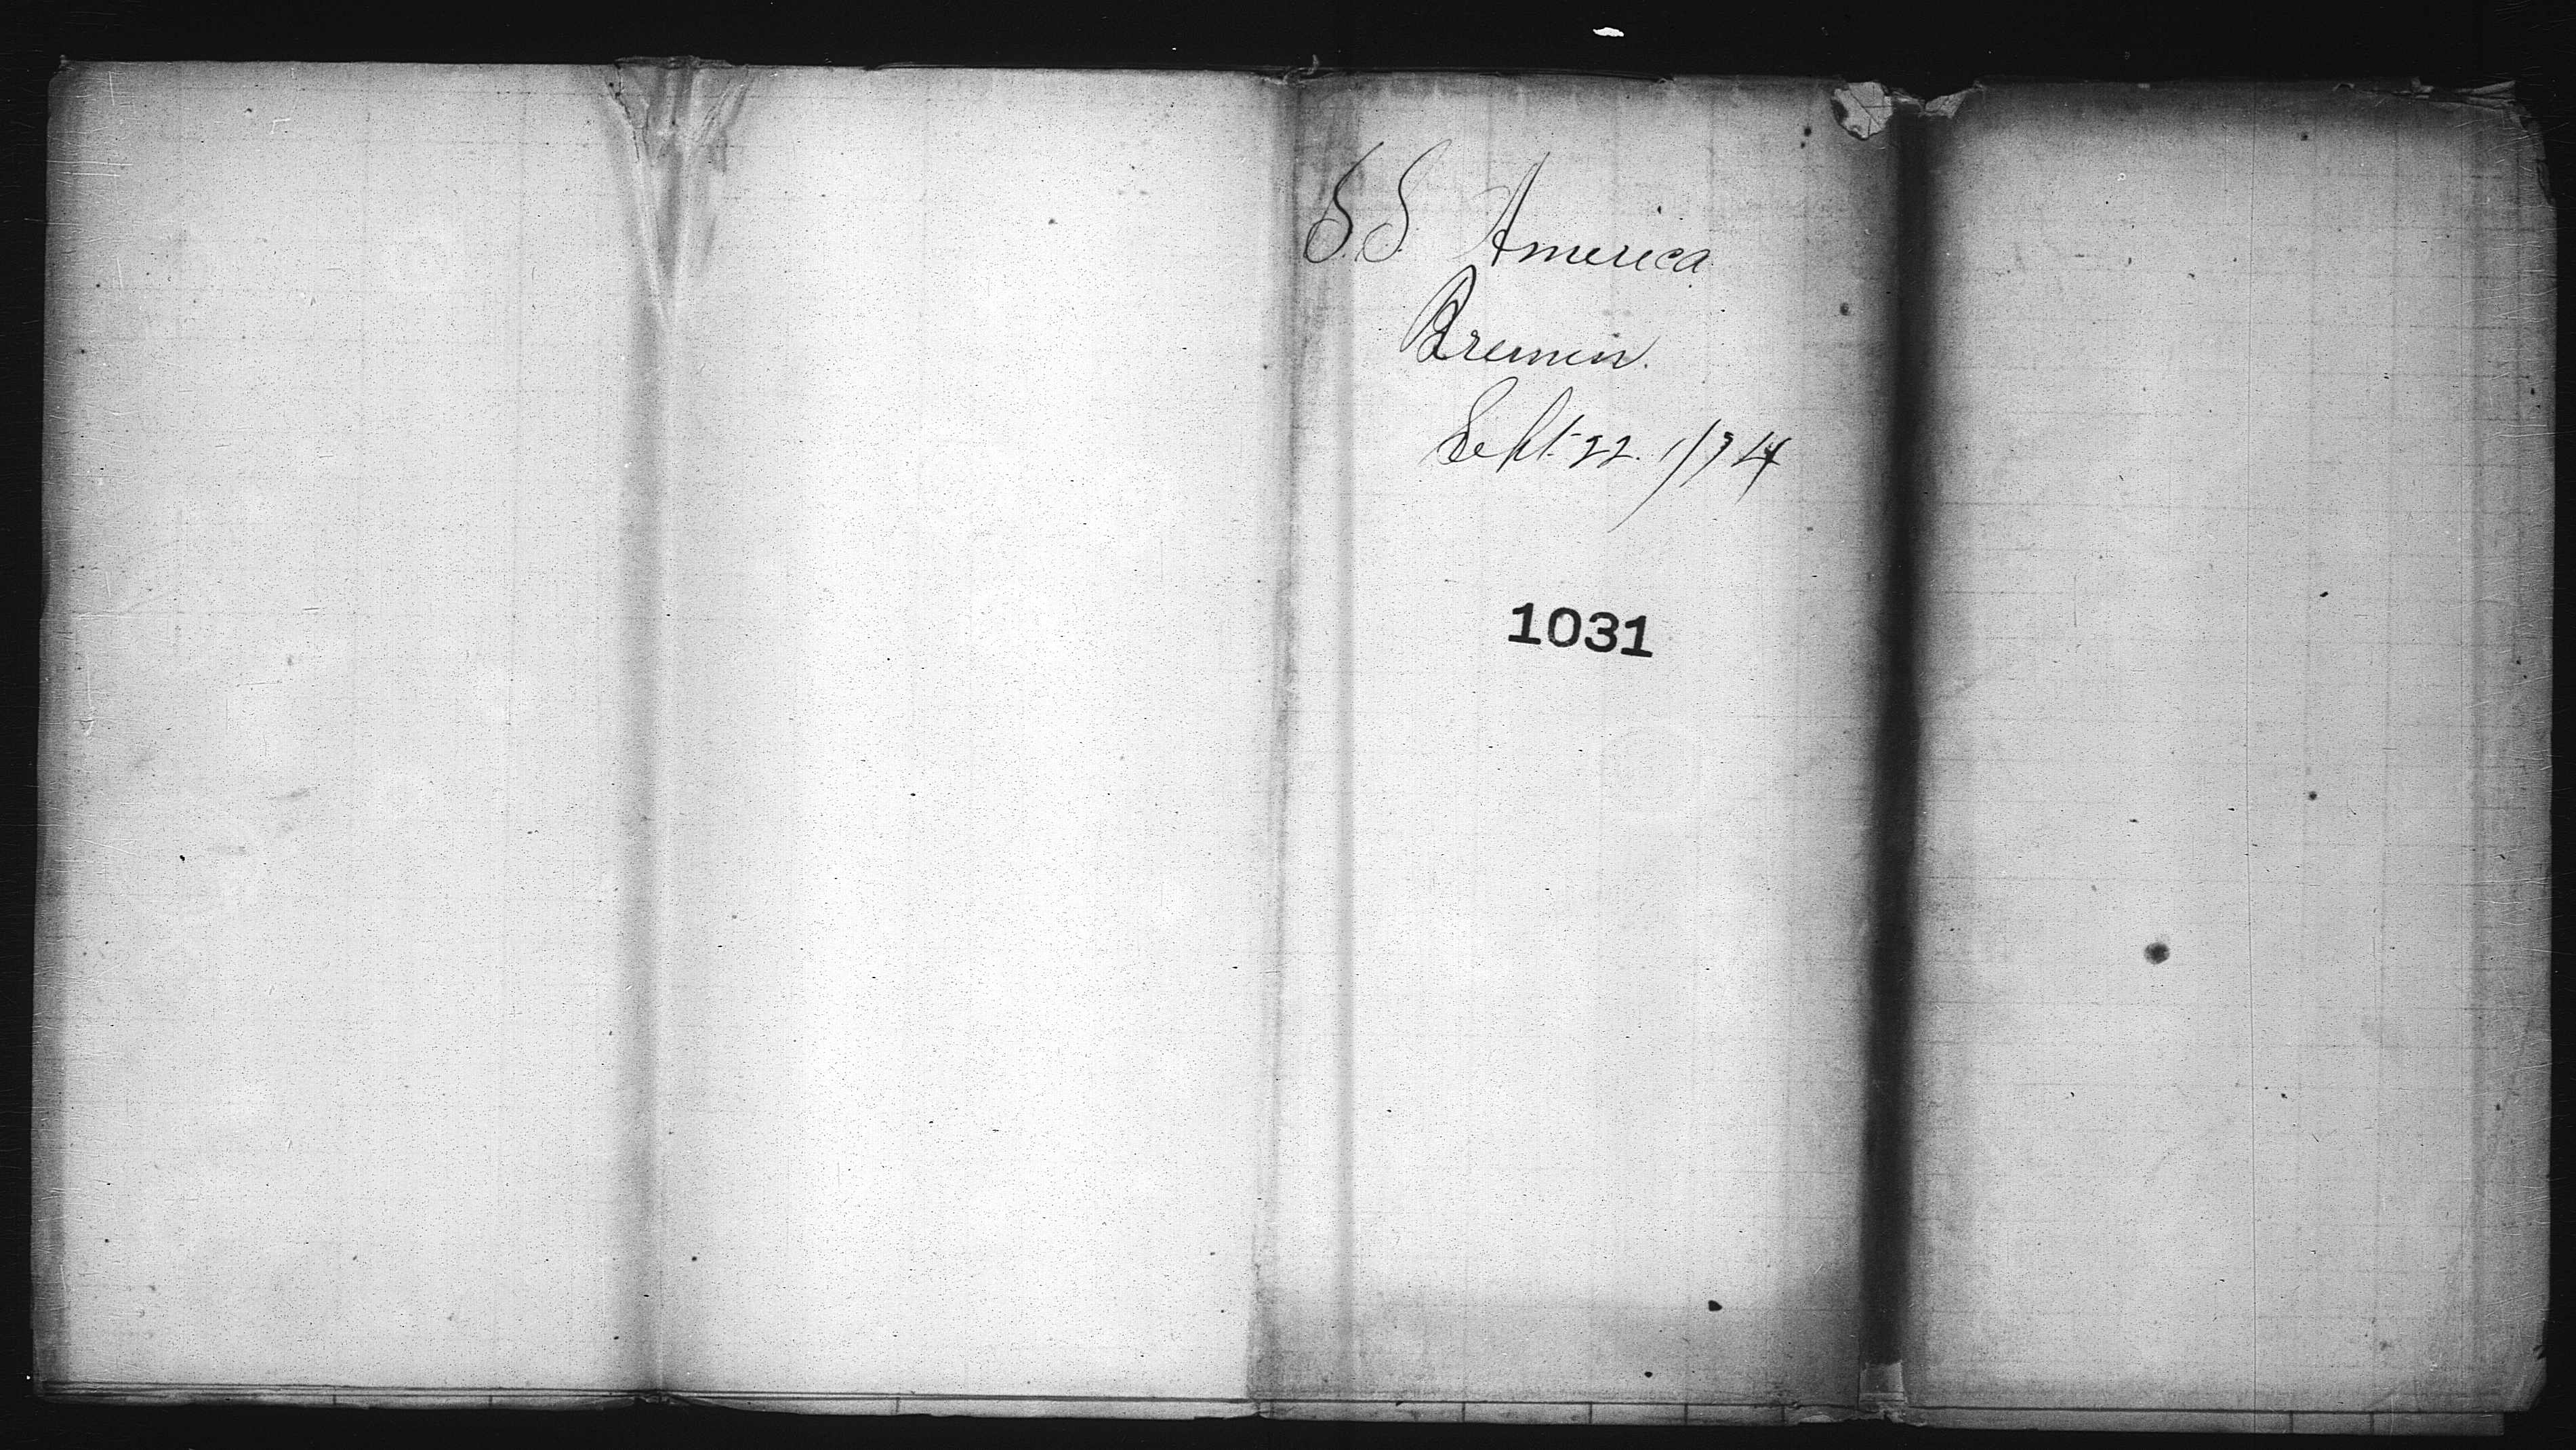 S.S. America
Bremen.
Sept. 22. 1/74
1031